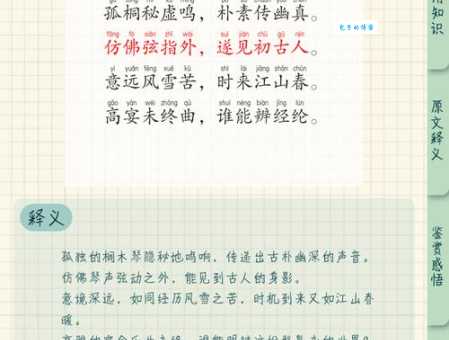 孤桐秘虚鸣，朴素传幽真。
fǎng fú xián zhǐ wài suì jiàn chū gǔ rén
仿佛弦指外，遂见初古人。
yì yuǎn fēng xuě kǔ shí lái jiāng shān chūn
意远风雪苦，时来江山春。
gāo yàn wèi zhōng qǔ shuí néng biàn jīng lún
高宴未终曲，谁能辨经纶。
知识
原文释义
鉴赏感悟
释义
孤独的桐木琴隐秘地鸣响，传递出古朴幽深的声音。
仿佛琴声弦动之外，能见到古人的身影。
意境深远，如同经历风雪之苦，时机到来又如江山春
暖。